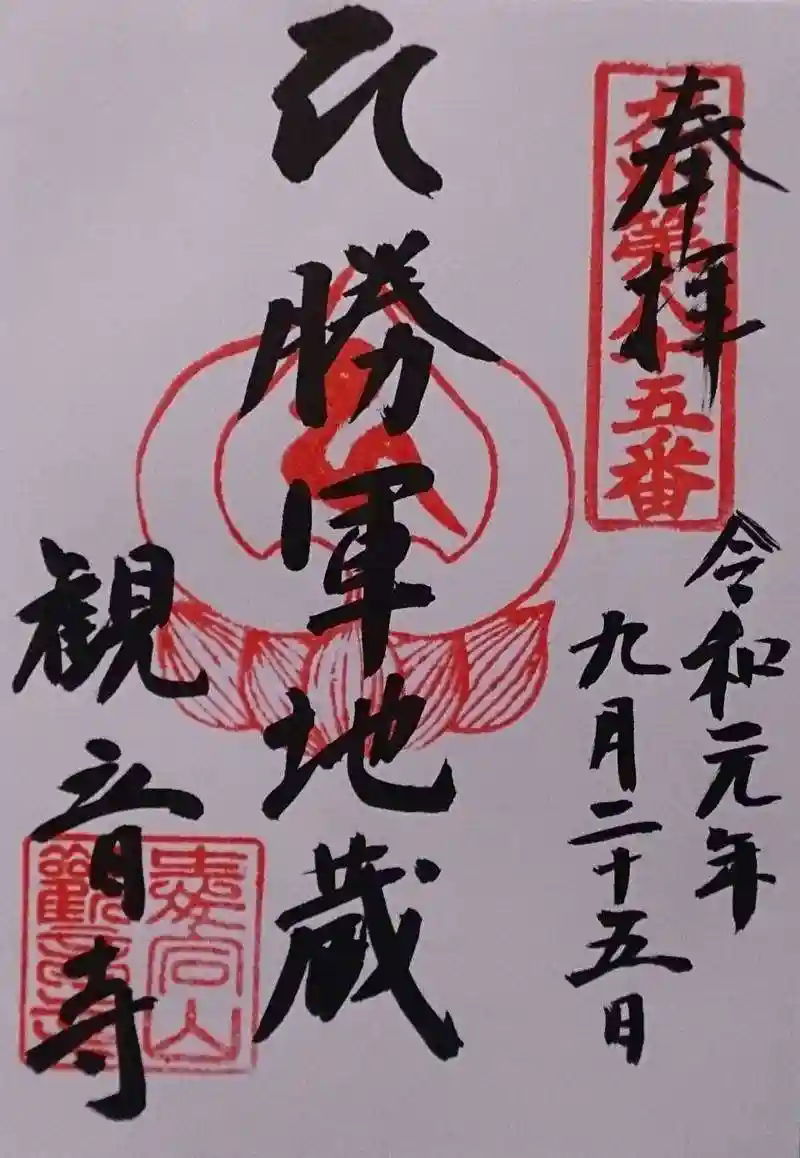 奉拝
第八十五番
令和元年
九月二十五日
勝軍地蔵
観音寺
愛宕山
觀音寺